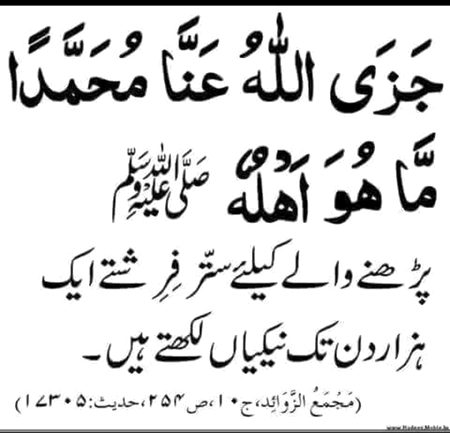 جَزَى اللّٰهُ عَنَّا مُحَمَّدًا
مَّا هُوَ اَهْلُهٗ صَلَّى اللّٰهُ عَلَيْهِ وَسَلَّم
پڑھنے والے کیلئے ستّر فِرِشتے ایک
ہزار دن تک نیکیاں لکھتے ہیں۔
(مَجْمَعُ الزَّوَائِد، ج۱۰، ص۲۵۴، حدیث: ۱۷۳۰۵)